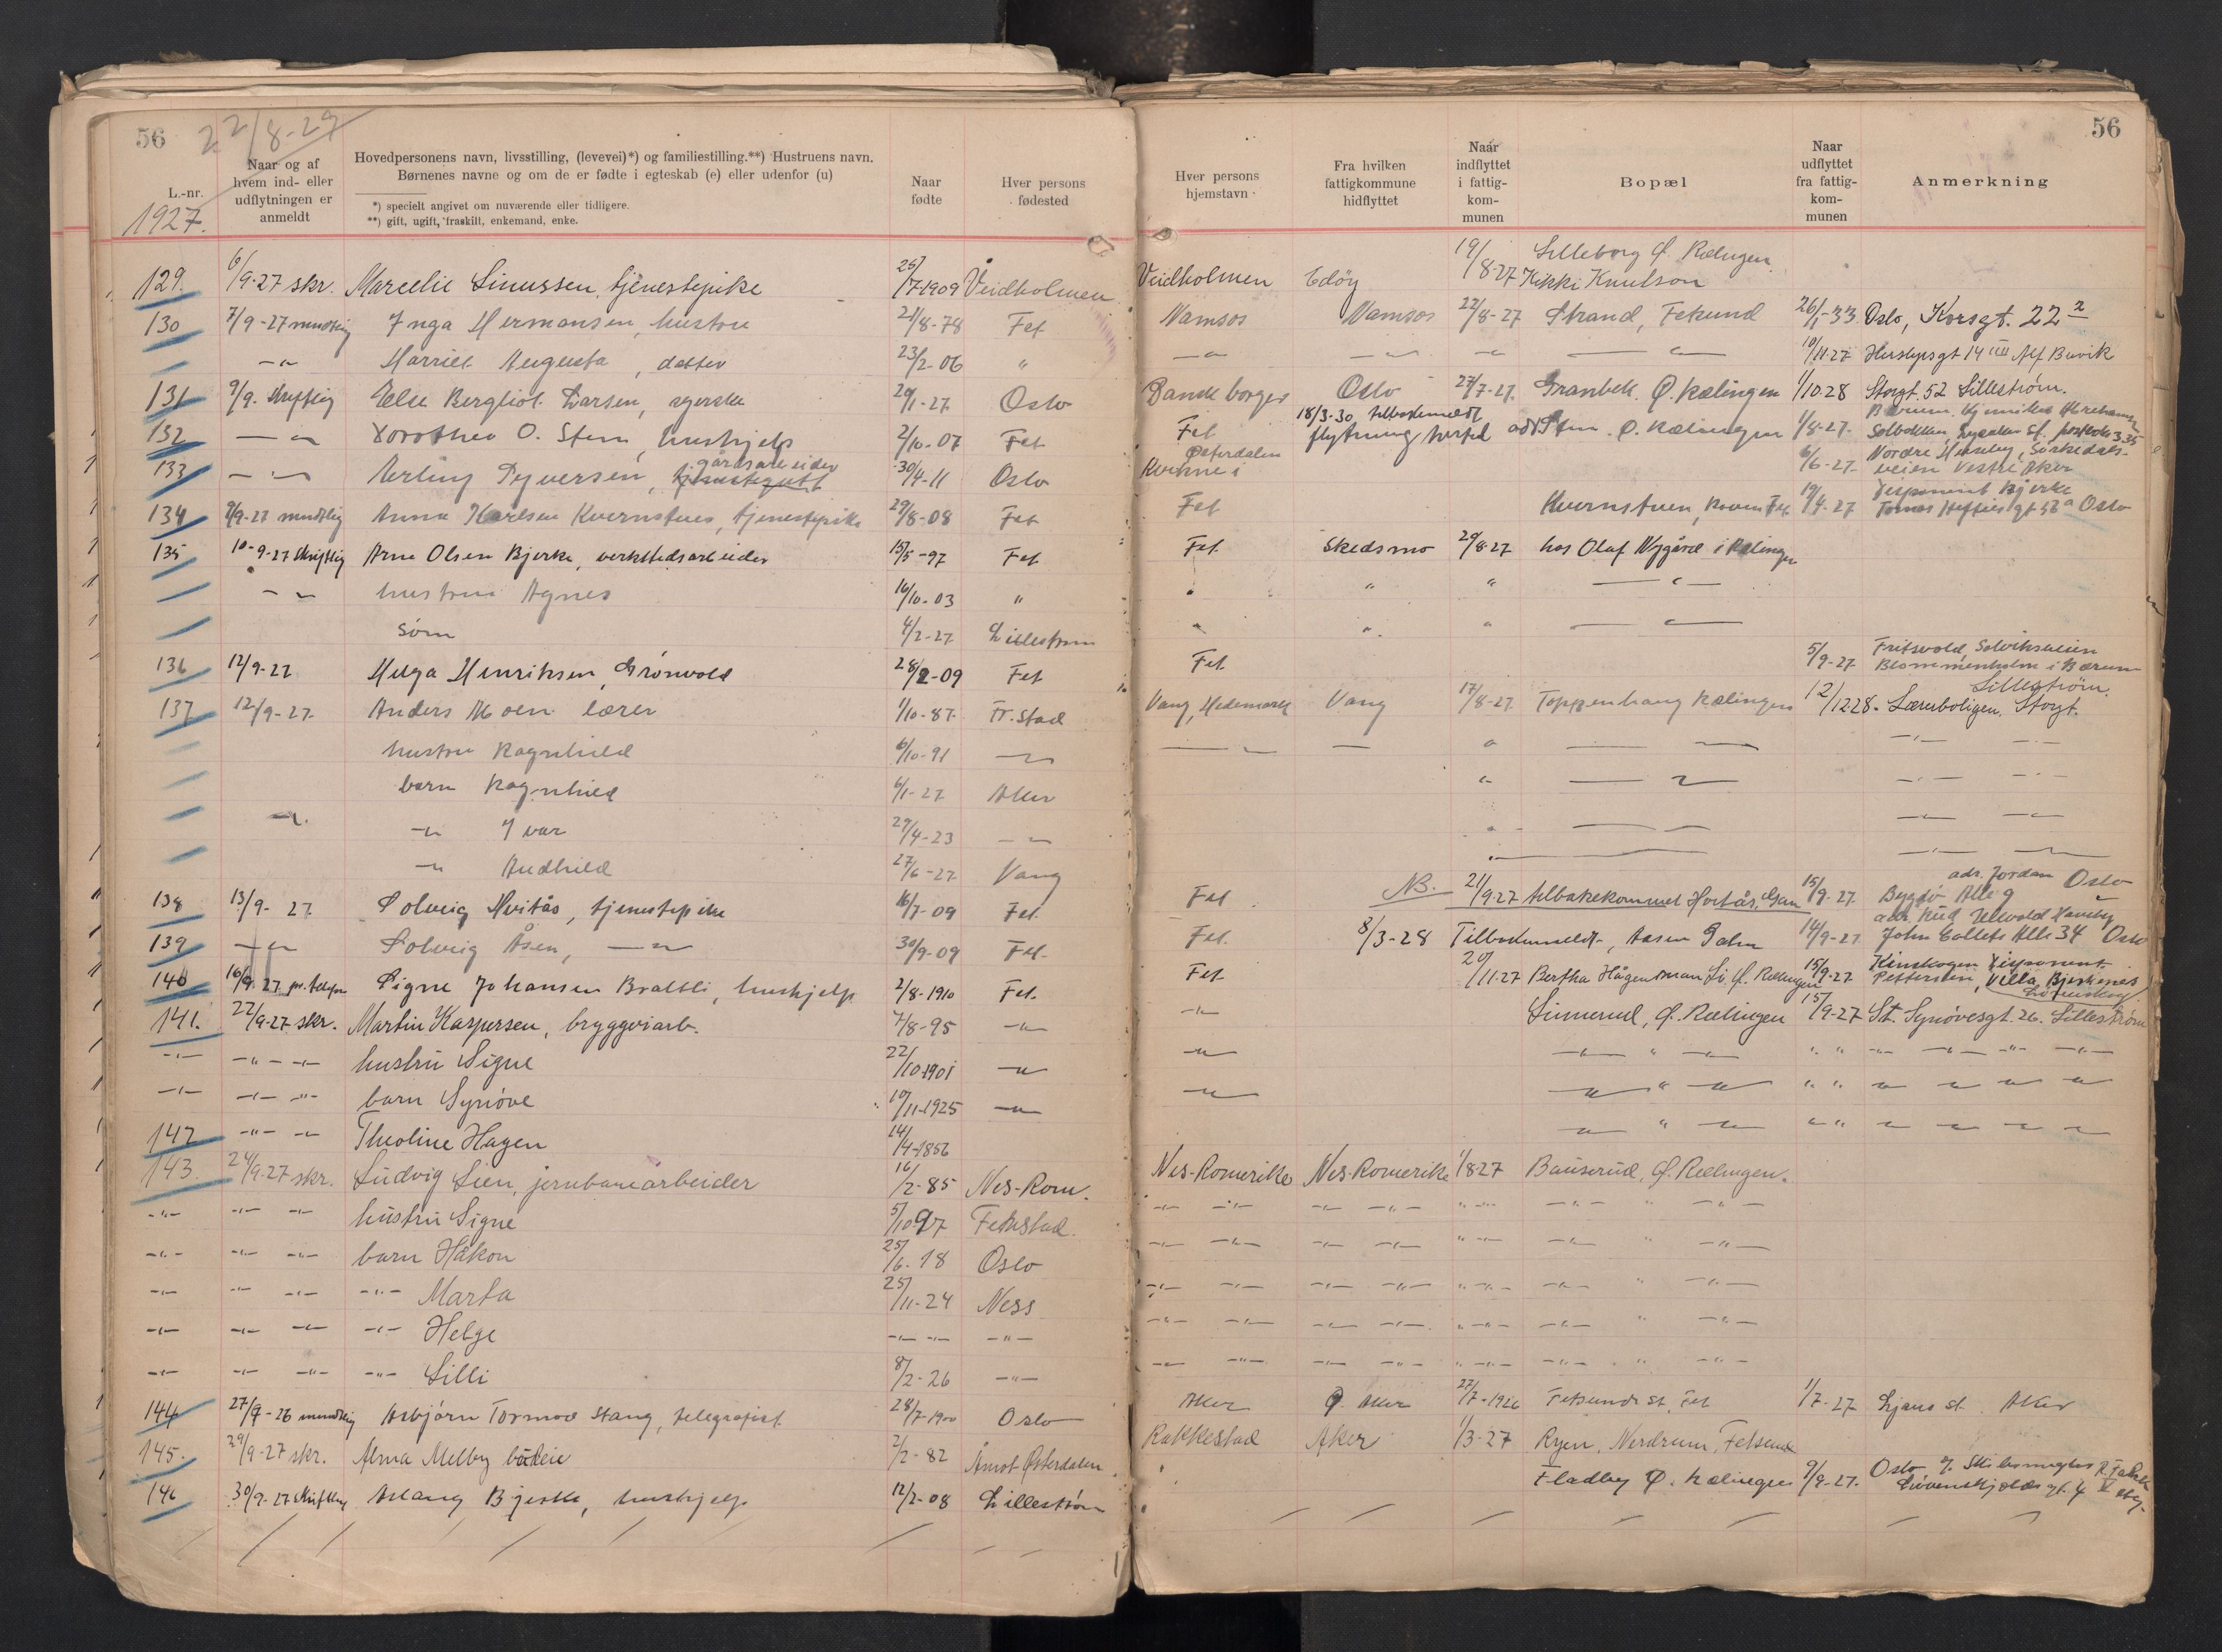 56
22/8-27
L.-nr.
1927.
Naar og af
hvem ind- eller
udflytningen er
anmeldt
Hovedpersonens navn, livsstilling, (levevei)*) og familiestilling.**) Hustruens navn.
Børnenes navne og om de er fødte i egteskab (e) eller udenfor (u)
*) specielt angivet om nuværende eller tidligere.
**) gift, ugift, fraskilt, enkemand, enke.
Naar
fødte
Hver persons
fødested
Hver persons
hjemstavn
Fra hvilken
fattigkommune
hidflyttet
Naar
indflyttet
i fattig-
kom-
munen
Bopæl
Naar
udflyttet
fra fattig-
kom-
munen
Anmerkning
56
129. 6/9-27 skr. Marcelie Linussen, tjenestepike 25/7-1909 Veidholmen Veidholmen Edøy 19/8-27 Lilleborg Ø. Rælingen Kikki Knutson
130 7/9-27 mundtlig Inga Hermansen, hustru 21/8-78 Fet Namsos Namsos 22/8-27 Strand, Fetsund 26/1-33 Oslo, Korsgt. 22 2
-"- Harriet Augusta, datter 23/2-06 " -"- -"- -"- -"- 10/11-27 14 III Alf Buvik
131 9/9. skriftlig Else Bergliot Larsen, syerske 20/1-27 Oslo Dansk borger Oslo 27/7-27. Granbekk Ø. Rælingen 1/10-28 Storgt. 52 Lillestrøm.
132 -"- Dorothea O. Stem, hushjelp 2/10-07 Fet Fet 18/3-30 tilbakemeldt flytning Ø. Rælingen 1/8-27. Solbakken, Lysaker st. postboks 335
133 -"- Erling Syversen, gårdsarbeider tjenestegutt 30/4-11 Oslo Kvikne i Østerdalen 6/6-27 Nordre Huseby, Sørkedals-
veien Vestre Aker
134 9/9-27 mundtlig Anna Karlsen Kvernstuen, tjenestepike 29/8-08 Fet Fet Kvernstuen, Roven Fet 19/4-27 Disponent Bjerke
Tomas Heftyes gt 56 a Oslo
135 10-9-27 skriftlig Arne Olsen Bjerke, verkstedsarbeider 15/5-97 Fet Fet Skedsmo 29/8-27 hos Olaf Nygård i Rælingen
-"- hustru Agnes 16/10-03 " " " " -"-
sønn 4/2-27 Lillestrøm " " " -"-
136 12/9-27 Helga Henriksen, Grønvold 28/2-09 Fet Fet 5/9-27 Fritsvold, Solviksveien
Blommenholm i Bærum
137 12/9-27. Anders Moen lærer 1/10-87. Fr.stad Vang, Hedemark Vang 17/8-27 Toppenhaug Rælingen 12/12-28. Lærerboligen. Storgt. Lillestrøm.
hustru Ragnhild 6/10-91 -"- -"- - " -"- -"- -"-
barn Ragnhild 6/1-27 Aker " -"- -"- -"-
-"- -"- Ivar 29/4-23 -"- " -"- -"- -"-
-"- Audhild 27/6-27 Vang " -"- -"- -"-
138 13/9-27 Solveig Hvitås, tjenestepike 16/7-09 Fet. Fet NB. 21/9-27 tilbakekommet 15/9-27. adr. Jordan Oslo
Bygdø Alle 9
139 -"- Solveig Åsen, -"- 30/9-09 Fet. Fet. 8/3-28 Tilbakemeldt, Aasen Dalen 14/9-27
John Collets Alle 34 Oslo
140 16/9. 27. pr. telefon Signe Johansen Bratlli, hushjelp 2/8-1910 Fet. Fet 20/11-27 Bertha Ø. Rælingen 15/9-27 disponent
Pettersen, Villa Bjerkenes
Lørenskog
141. 22/9-27 skr. Martin Kaspersen, bryggeriarb. 7/8-95 -"- -"- Linnerud, Ø. Rælingen 15/9-27 St. Synøvesgt. 26. Lillestrøm
-"- -"- -"- hustru Signe 22/10-1901 -"- -"- -"- " -"- " " -"- -"- -"- -"-
-"- -"- -"- barn Synøve 10/11-1925 -"- -"- -"- " -"- " " -"- -"- -"- -"-
142 -"- -"- Theoline Hagen 14/4-1856 -"- " -"- " " -"- -"- -"- -"-
143. 24/9-27 skr. Ludvig Lien, jernbanearbeider 16/2-85 Nes-Rom. Nes-Romerike Nes-Romerike 1/8-27 Bauserud, Ø. Rælingen.
-"- -"- -"- hustru Signe 5/10-97 Fetustad. -"- -"- -"- -"- " -"- -"- " -"-
-"- -"- -"- barn Håkon 25/6-18 Oslo -"- -"- -"- -"- " -"- -"- " -"-
-"- -"- -"- -"- Marta 25/11-24 Ness -"- -"- -"- -"- " -"- -"- " -"-
-"- -"- -"- -"- Helge -"- -"- -"- -"- -"- -"- -"- " -"- -"- " -"-
-"- -"- -"- -"- Lilli 8/2-26 -"- -"- -"- -"- -"- " -"- -"- " -"-
144 27/9-26 mundtlig Asbjørn Tormod Stang, telegrafist 28/7-1900 Oslo Aker Ø. Aker 27/7-1926 Fetsund st. Fet 1/7-27 Ljans st. Aker
145. 29/9-27 skr. Alma Melby 2/2-82 Åmot Østerdalen Rakkestad Aker 1/3-27 Ryen, Nerdrum, Fetsund
146 30/9-27 skriftlig Aslaug Bjerke, hushjelp 12/2-08 Lillestrøm Fladby Ø. Rælingen 9/9-27. Oslo
Løvenskjolds gt. 4